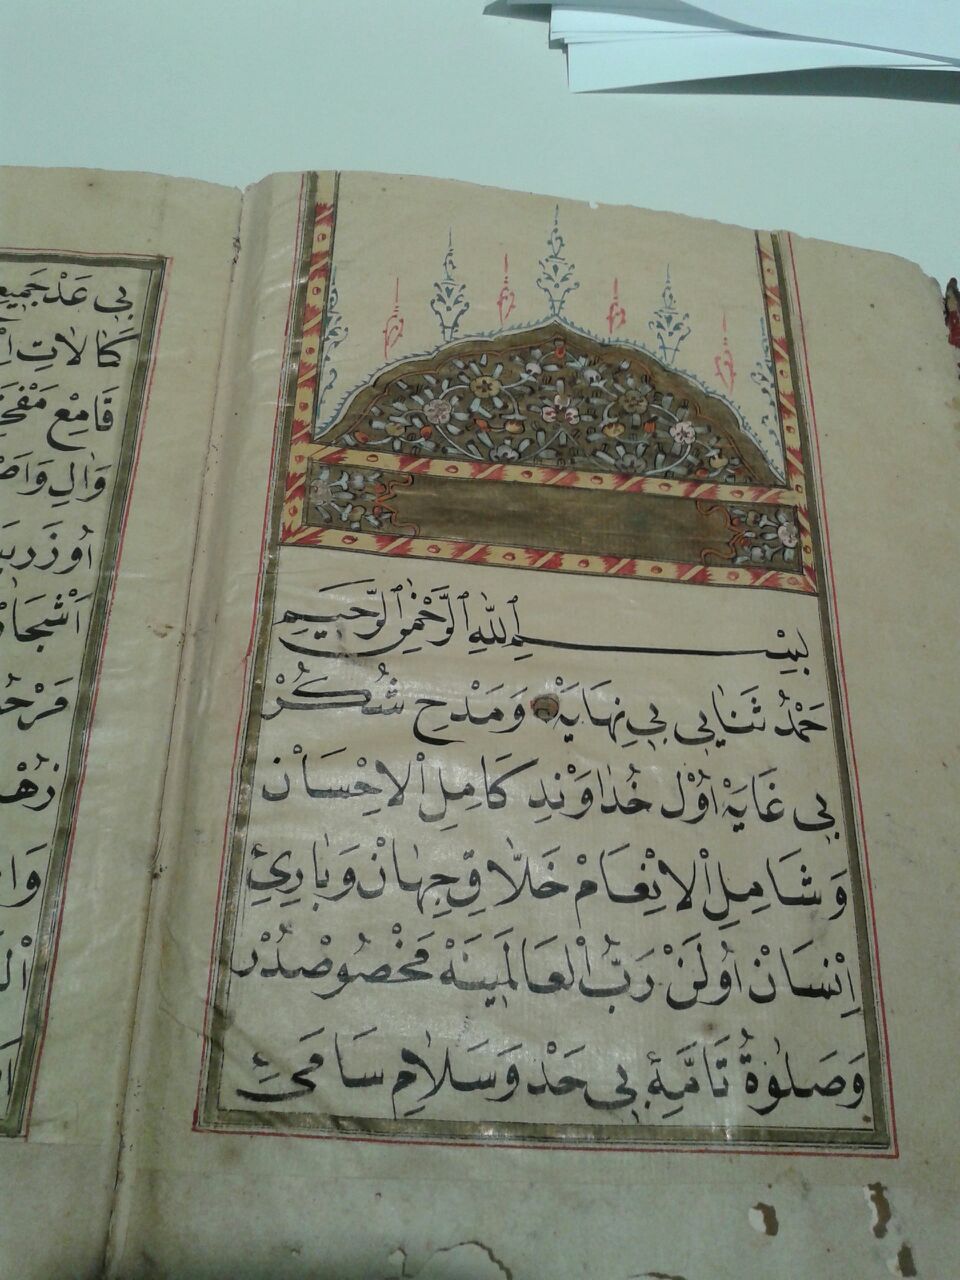 بِسْمِ اللّٰهِ الرَّحْمٰنِ الرَّحِيمِ
حَمْدُ ثَنَايِى بِى نِهَايَهْ وَمَدْحِ شُكُرْ
بِى غَايَهْ اُوْلْ خُدَاوَنْدِ كَامِلِ الْاِحْسَانْ
وَشَامِلِ الْاِنْعَامْ خَلَّاقِ جِهَانْ وَبَارِئِ
اِنْسَانْ اُولَنْ رَبُّ الْعَالَمِينَهْ مَخْصُوصْدُرْ
وَصَلٰوةُ تَامَّۀِ بِى حَدْ وَسَلَامِ سَامَىِٔ
بِى عَدْ جَمِيعِ
كَمَالَاتِ
قَامِعِ
وَالِ وَاَصْ
اَشْجَا